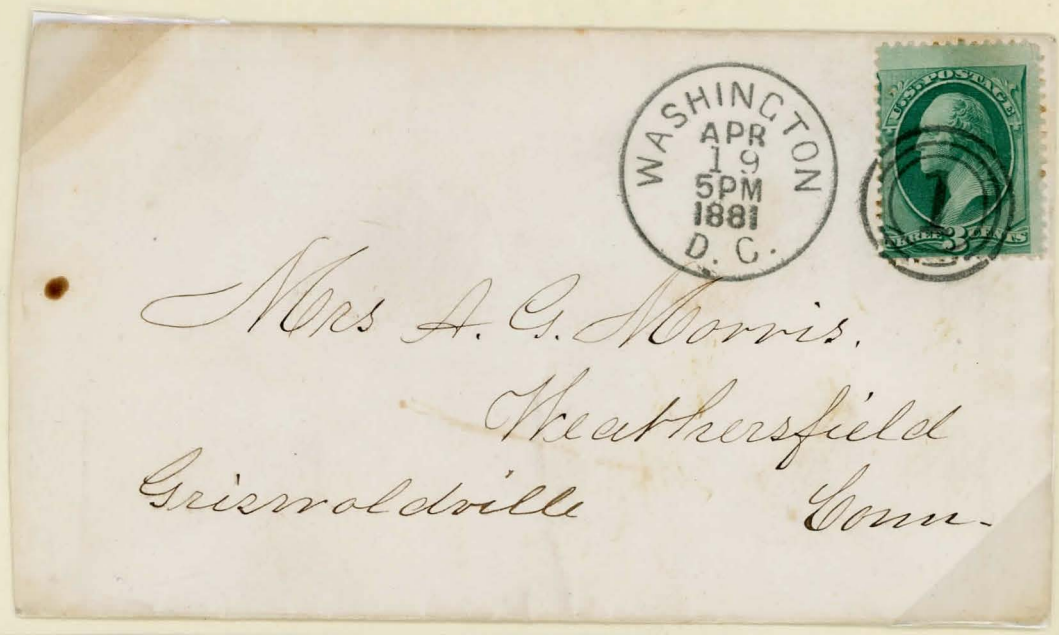 WASHINGTON
APR
19
5PM
1881
D. C.
U.S. POSTAGE
THREE 3 CENTS
1
Mrs A. G. Morris.
Weathersfield
Griswoldville Conn-